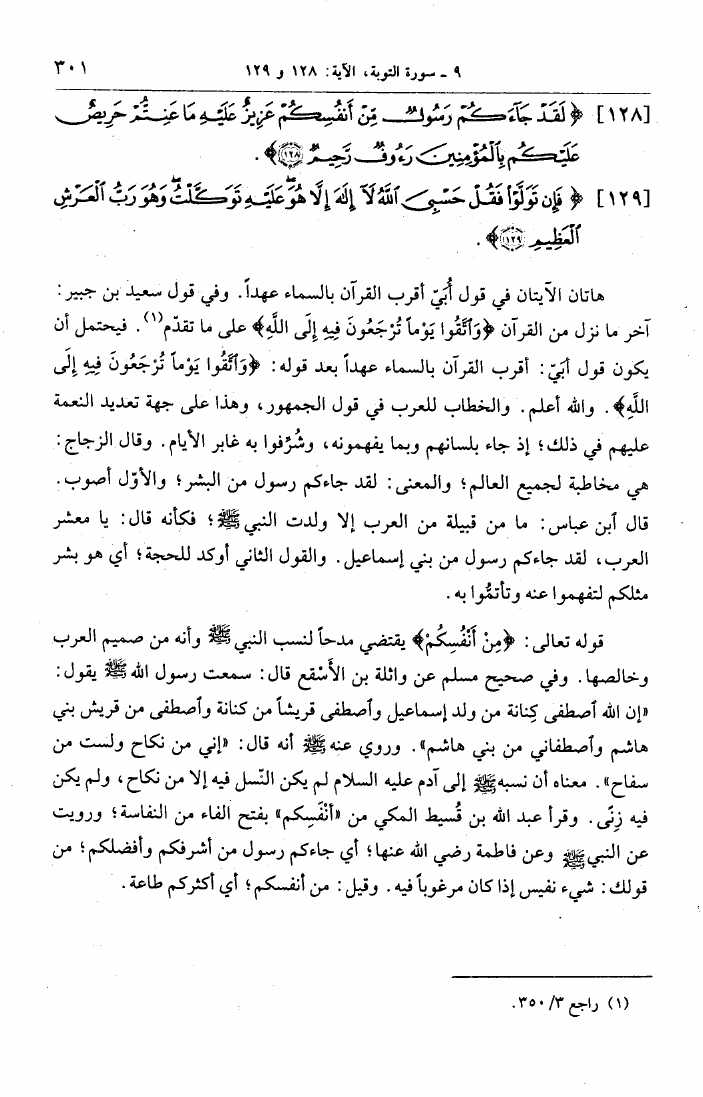 ٩ - سورة التوبة، الآية: ١٢٨ و ١٢٩ ٣٠١
[١٢٨] ﴿لَقَدْ جَآءَكُمْ رَسُولٌ مِّنْ أَنفُسِكُمْ عَزِيزٌ عَلَيْهِ مَا عَنِتُّمْ حَرِيصٌ
عَلَيْكُم بِٱلْمُؤْمِنِينَ رَءُوفٌ رَّحِيمٌ ﴿١٢٨﴾﴾.
[١٢٩] ﴿فَإِن تَوَلَّوْا فَقُلْ حَسْبِيَ ٱللَّهُ لَآ إِلَٰهَ إِلَّا هُوَ ۖ عَلَيْهِ تَوَكَّلْتُ ۖ وَهُوَ رَبُّ ٱلْعَرْشِ
ٱلْعَظِيمِ ﴿١٢٩﴾﴾.
هاتان الآيتان في قول أُبَيّ أقرب القرآن بالسماء عهداً. وفي قول سعيد بن جبير:
آخر ما نزل من القرآن ﴿وَٱتَّقُوا يَوْماً تُرْجَعُونَ فِيهِ إِلَى اللَّهِ﴾ على ما تقدّم(١). فيحتمل أن
يكون قول أُبَيّ: أقرب القرآن بالسماء عهداً بعد قوله: ﴿وَٱتَّقُوا يَوْماً تُرْجَعُونَ فِيهِ إِلَى
اللَّهِ﴾. والله أعلم. والخطاب للعرب في قول الجمهور، وهذا على جهة تعديد النعمة
عليهم في ذلك؛ إذ جاء بلسانهم وبما يفهمونه، وشُرِّفوا به غابر الأيام. وقال الزجاج:
هي مخاطبة لجميع العالم؛ والمعنى: لقد جاءكم رسول من البشر؛ والأوّل أصوب.
قال ٱبن عباس: ما من قبيلة من العرب إلا ولدت النبيﷺ؛ فكأنه قال: يا معشر
العرب، لقد جاءكم رسول من بني إسماعيل. والقول الثاني أوكد للحجة؛ أي هو بشر
مثلكم لتفهموا عنه وتأتمُّوا به.
قوله تعالى: ﴿مِنْ أَنْفُسِكُمْ﴾ يقتضي مدحاً لنسب النبي ﷺ وأنه من صميم العرب
وخالصها. وفي صحيح مسلم عن واثلة بن الأَسْقع قال: سمعت رسول الله ﷺ يقول:
«إن الله ٱصطفى كِنانة من ولد إسماعيل وٱصطفى قريشاً من كنانة وٱصطفى من قريش بني
هاشم وٱصطفاني من بني هاشم». وروي عنه ﷺ أنه قال: «إني من نكاح ولست من
سفاح». معناه أن نسبه ﷺ إلى آدم عليه السلام لم يكن النّسل فيه إلا من نكاح، ولم يكن
فيه زِنًى. وقرأ عبد الله بن قُسيط المكي من «أَنْفَسِكم» بفتح الفاء من النفاسة؛ ورويت
عن النبي ﷺ وعن فاطمة رضي الله عنها؛ أي جاءكم رسول من أشرفكم وأفضلكم؛ من
قولك: شيء نفيس إذا كان مرغوباً فيه. وقيل: من أنفسكم؛ أي أكثركم طاعة.
(١) راجع ٣/ ٣٥٠.